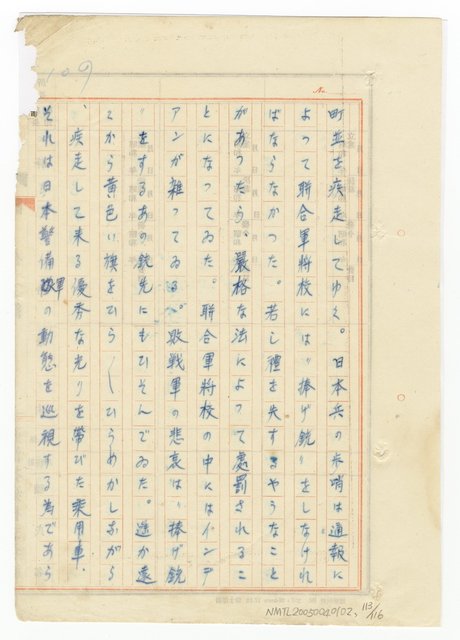 109
No.
町並を疾走してゆく。日本兵の歩哨は通報に
よって聯合軍将校には〃捧げ銃〃をしなけれ
ばならなかった。若し禮を失するやうなこと
があったら、嚴格な法によって處罰されるこ
とになってゐた。聯合軍将校の中にはインデ
アンが雜ってゐる。敗戦軍の悲哀は〃捧げ銃
〃をするあの銃先にもひそんでゐた。遥か遠
くから黄色い旗をひら〳〵ひらめかしながら
、疾走して来る優秀な光りを帯びた乗用車、
それは日本警備軍の動態を巡視する為であら
NMTL20050040102, 113/116